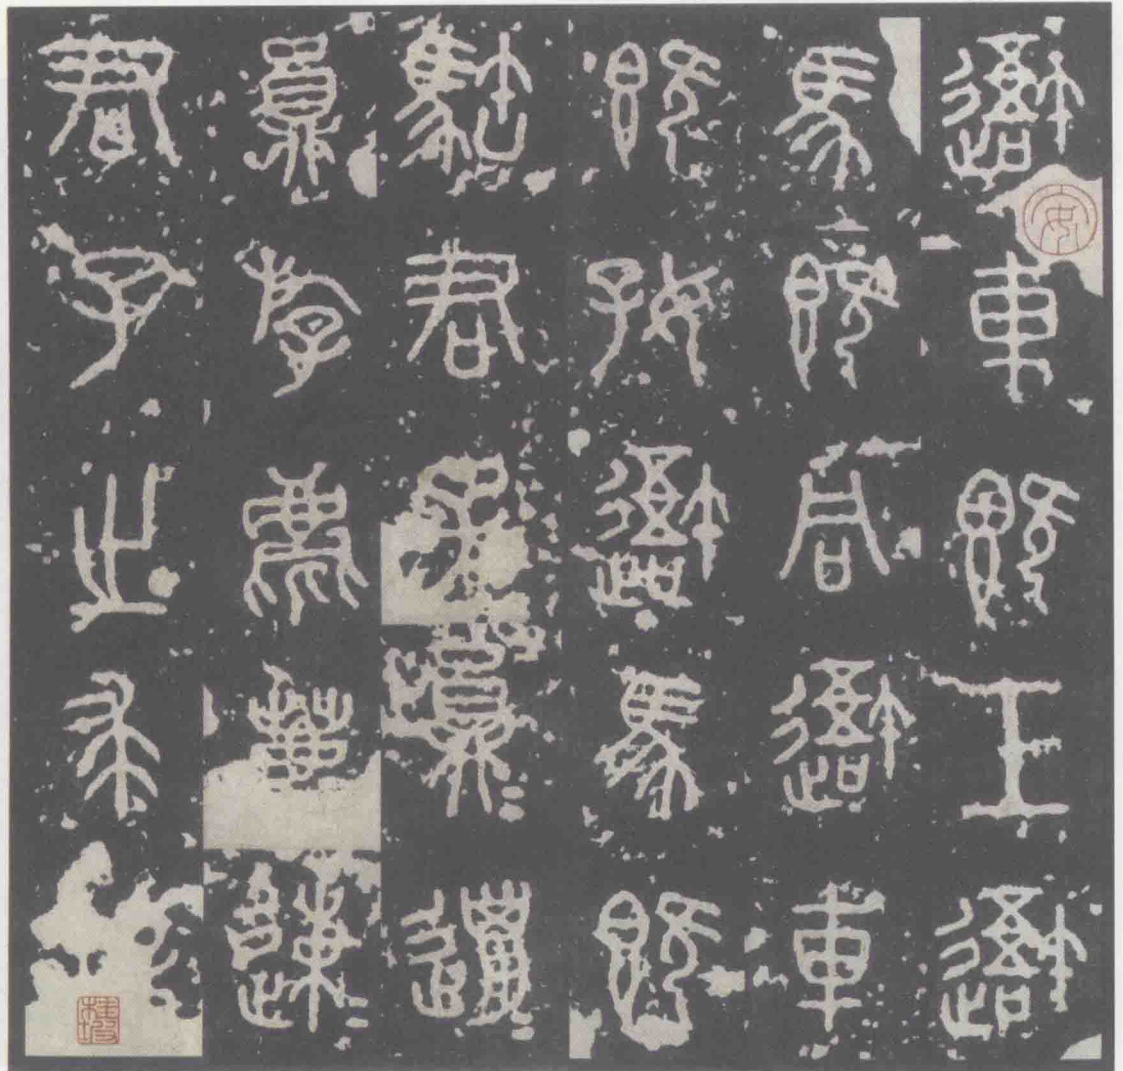 吾車既工吾
馬既同吾車
既好吾馬既
駘君子員邋
員斿麀鹿速
君子之求